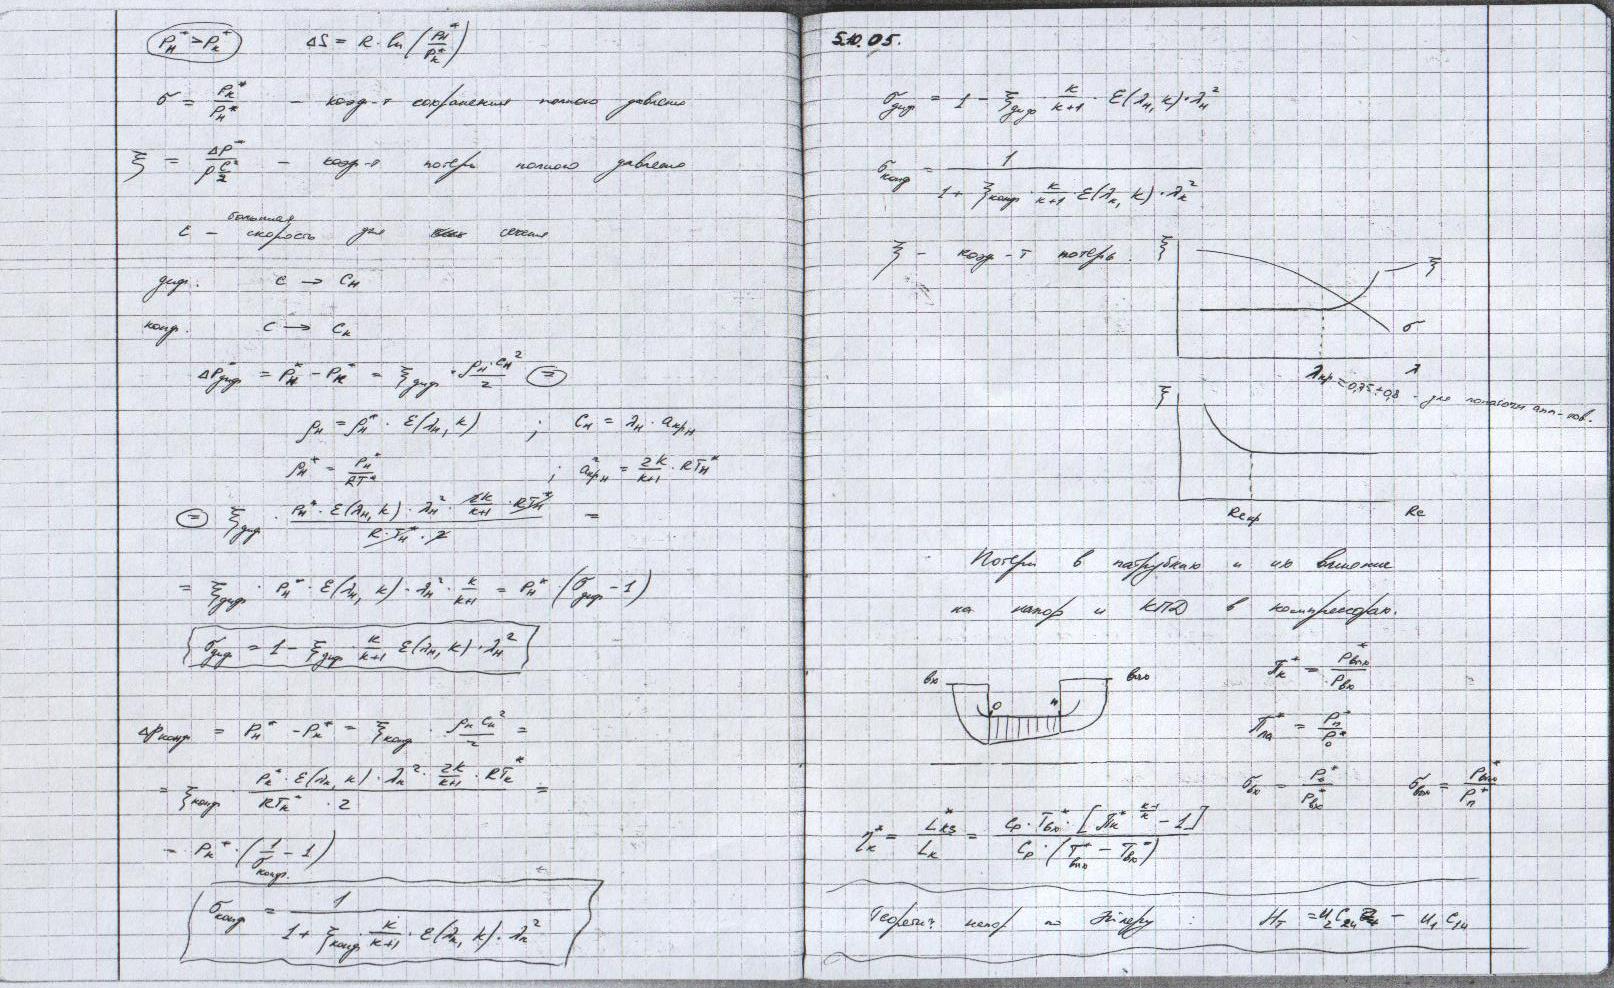 Pн* > Pк*    ΔS = R · ln (Pн*/Pк*)
σ = Pк*/Pн* – коэф-т сохранения полного давления
ξ = ΔP*/(ρ c²/2) – коэф-т потерь полного давления
большая
c – скорость для сечения
диф.    c → cн
конф.    c → cк
ΔPдиф* = Pн* – Pк* = ξдиф · ρн · cн²/2 =
ρн = ρн* · ε(λн, k) ; cн = λн · aкрн
ρн* = Pн*/RT* ; aкрн² = 2k/(k+1) · RTн*
= ξдиф · Pн* · ε(λн, k) · λн² · 2k/(k+1) · RTн* / (R · Tн* · 2) =
= ξдиф · Pн* · ε(λн, k) · λн² · k/(k+1) = Pн* · (σдиф – 1)
σдиф = 1 – ξдиф · k/(k+1) ε(λн, k) · λн²
ΔPконф = Pн* – Pк* = ξконф · ρк cк²/2 =
= ξконф · Pк* · ε(λк, k) · λк² · 2k/(k+1) · RTк* / (RTк* · 2) =
= Pк* · (1/σконф. – 1)
σконф = 1 / (1 + ξконф · k/(k+1) · ε(λк, k) · λк²)
5.10.05.
σдиф = 1 – ξдиф · k/(k+1) · ε(λн, k) · λн²
σконф = 1 / (1 + ξконф · k/(k+1) · ε(λк, k) · λк²)
ξ – коэф-т потерь.
ξ
ξ
σ
λ
λкр = 0,75÷0,8 – для лопаточн апп-тов.
ξ
Reкр    Re
Потери в патрубках и их влияние
на напор и КПД в компрессорах.
вх    вых
0    п
πк* = Pвых*/Pвх*
Ппа* = Pп*/P0*
σвх = P0*/Pвх*    σвых = Pвых*/Pп*
ηк* = Lкs*/Lк = Cp · Tвх* · [πк*^((k–1)/k) – 1] / (Cp · (Tвых* – Tвх*))
Теоретич. напор по Эйлеру : Hт = u2 c2u – u1 c1u